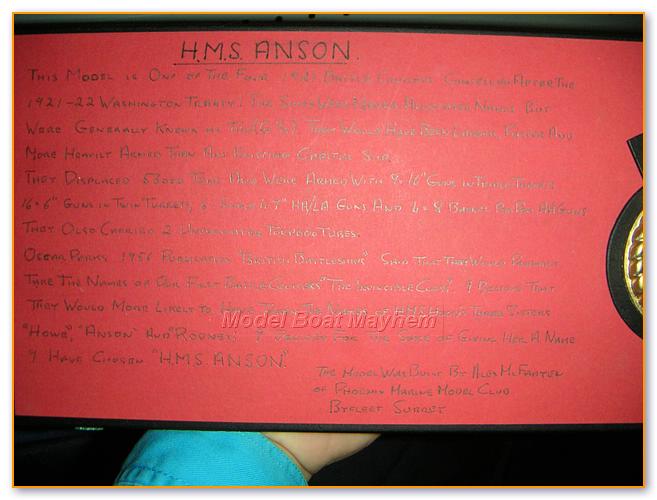 H.M.S. ANSON.
THIS MODEL IS ONE OF THE FOUR 1921 BATTLE CRUISERS CANCELLED AFTER THE
1921-22 WASHINGTON TREATY. THE SHIPS WERE NEVER ALLOCATED NAMES BUT
WERE GENERALLY KNOWN AS THEY WOULD HAVE BEEN LARGER, FASTER AND
MORE HEAVILY ARMED THEN ANY EXISTING CAPITAL SHIP.
THEY DISPLACED TONS AND WERE ARMED WITH 9 × 16" GUNS IN TURRETS,
16 × 6" GUNS IN TWIN TURRETS, 4.7" HA/LA GUNS AND 4 × 8 BARREL POM POM AA GUNS
THEY ALSO CARRIED 2 UNDERWATER TORPEDO TUBES.
OSCAR PARKS 1956 PUBLICATION "BRITISH BATTLESHIPS" SAID THAT THEY WOULD PROBABLY
TAKE THE NAMES OF OUR FIRST BATTLE CRUISERS "THE INVINCIBLE CLASS". I BELIEVE THAT
THEY WOULD MORE LIKELY TO HAVE TAKEN THE NAMES OF HMS HOOD'S THREE SISTERS
"HOWE", "ANSON" AND "RODNEY". I FOR THE SAKE OF GIVING HER A NAME
I HAVE CHOSEN "H.M.S. ANSON".
THE MODEL WAS BUILT BY ALEX
OF PHOENIX MARINE MODEL CLUB
BYFLEET SURREY
Model Boat Mayhem